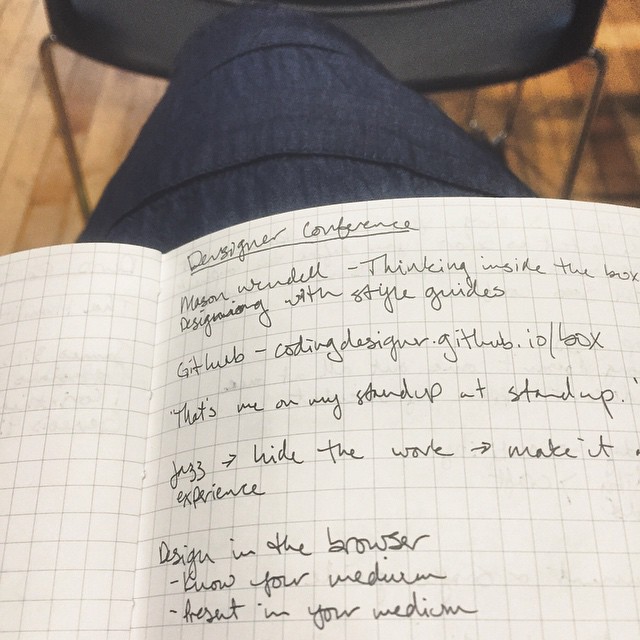 Devsigner Conference
Mason Wendell - Thinking inside the box
Designing with style guides
Github - codingdesigner.github.io/box
"That's me on my standup at standup."
Jazz → hide the work → make it a
experience
Design in the browser
- Know your medium
- Present in your medium